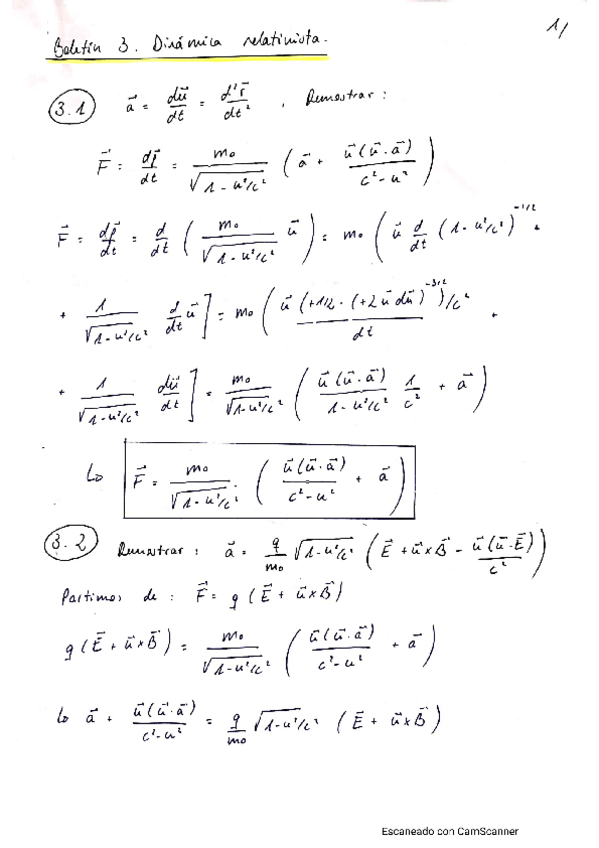 1/
Boletín 3. Dinámica relativista.
3.1 a⃗ = du⃗/dt = d²r⃗/dt² . Demostrar :
F⃗ = dp⃗/dt = m₀/√(1-u²/c²) ( a⃗ + u⃗(u⃗·a⃗)/(c²-u²) )
F⃗ = dp⃗/dt = d/dt ( m₀/√(1-u²/c²) u⃗ ) = m₀ ( u⃗ d/dt (1-u²/c²)^(-1/2) +
+ 1/√(1-u²/c²) d/dt u⃗ ] = m₀ ( u⃗ (+1/2·(+2u⃗ du⃗)^(-3/2))/c² / dt +
+ 1/√(1-u²/c²) du⃗/dt ] = m₀/√(1-u²/c²) ( u⃗(u⃗·a⃗)/(1-u²/c²) 1/c² + a⃗ )
↳ F⃗ = m₀/√(1-u²/c²) · ( u⃗(u⃗·a⃗)/(c²-u²) + a⃗ )
3.2 Demostrar : a⃗ = q/m₀ √(1-u²/c²) ( E⃗ + u⃗×B⃗ - u⃗(u⃗·E⃗)/c² )
Partimos de : F⃗ = q (E⃗ + u⃗×B⃗)
q(E⃗ + u⃗×B⃗) = m₀/√(1-u²/c²) ( u⃗(u⃗·a⃗)/(c²-u²) + a⃗ )
↳ a⃗ + u⃗(u⃗·a⃗)/(c²-u²) = q/m₀ √(1-u²/c²) (E⃗ + u⃗×B⃗)
Escaneado con CamScanner